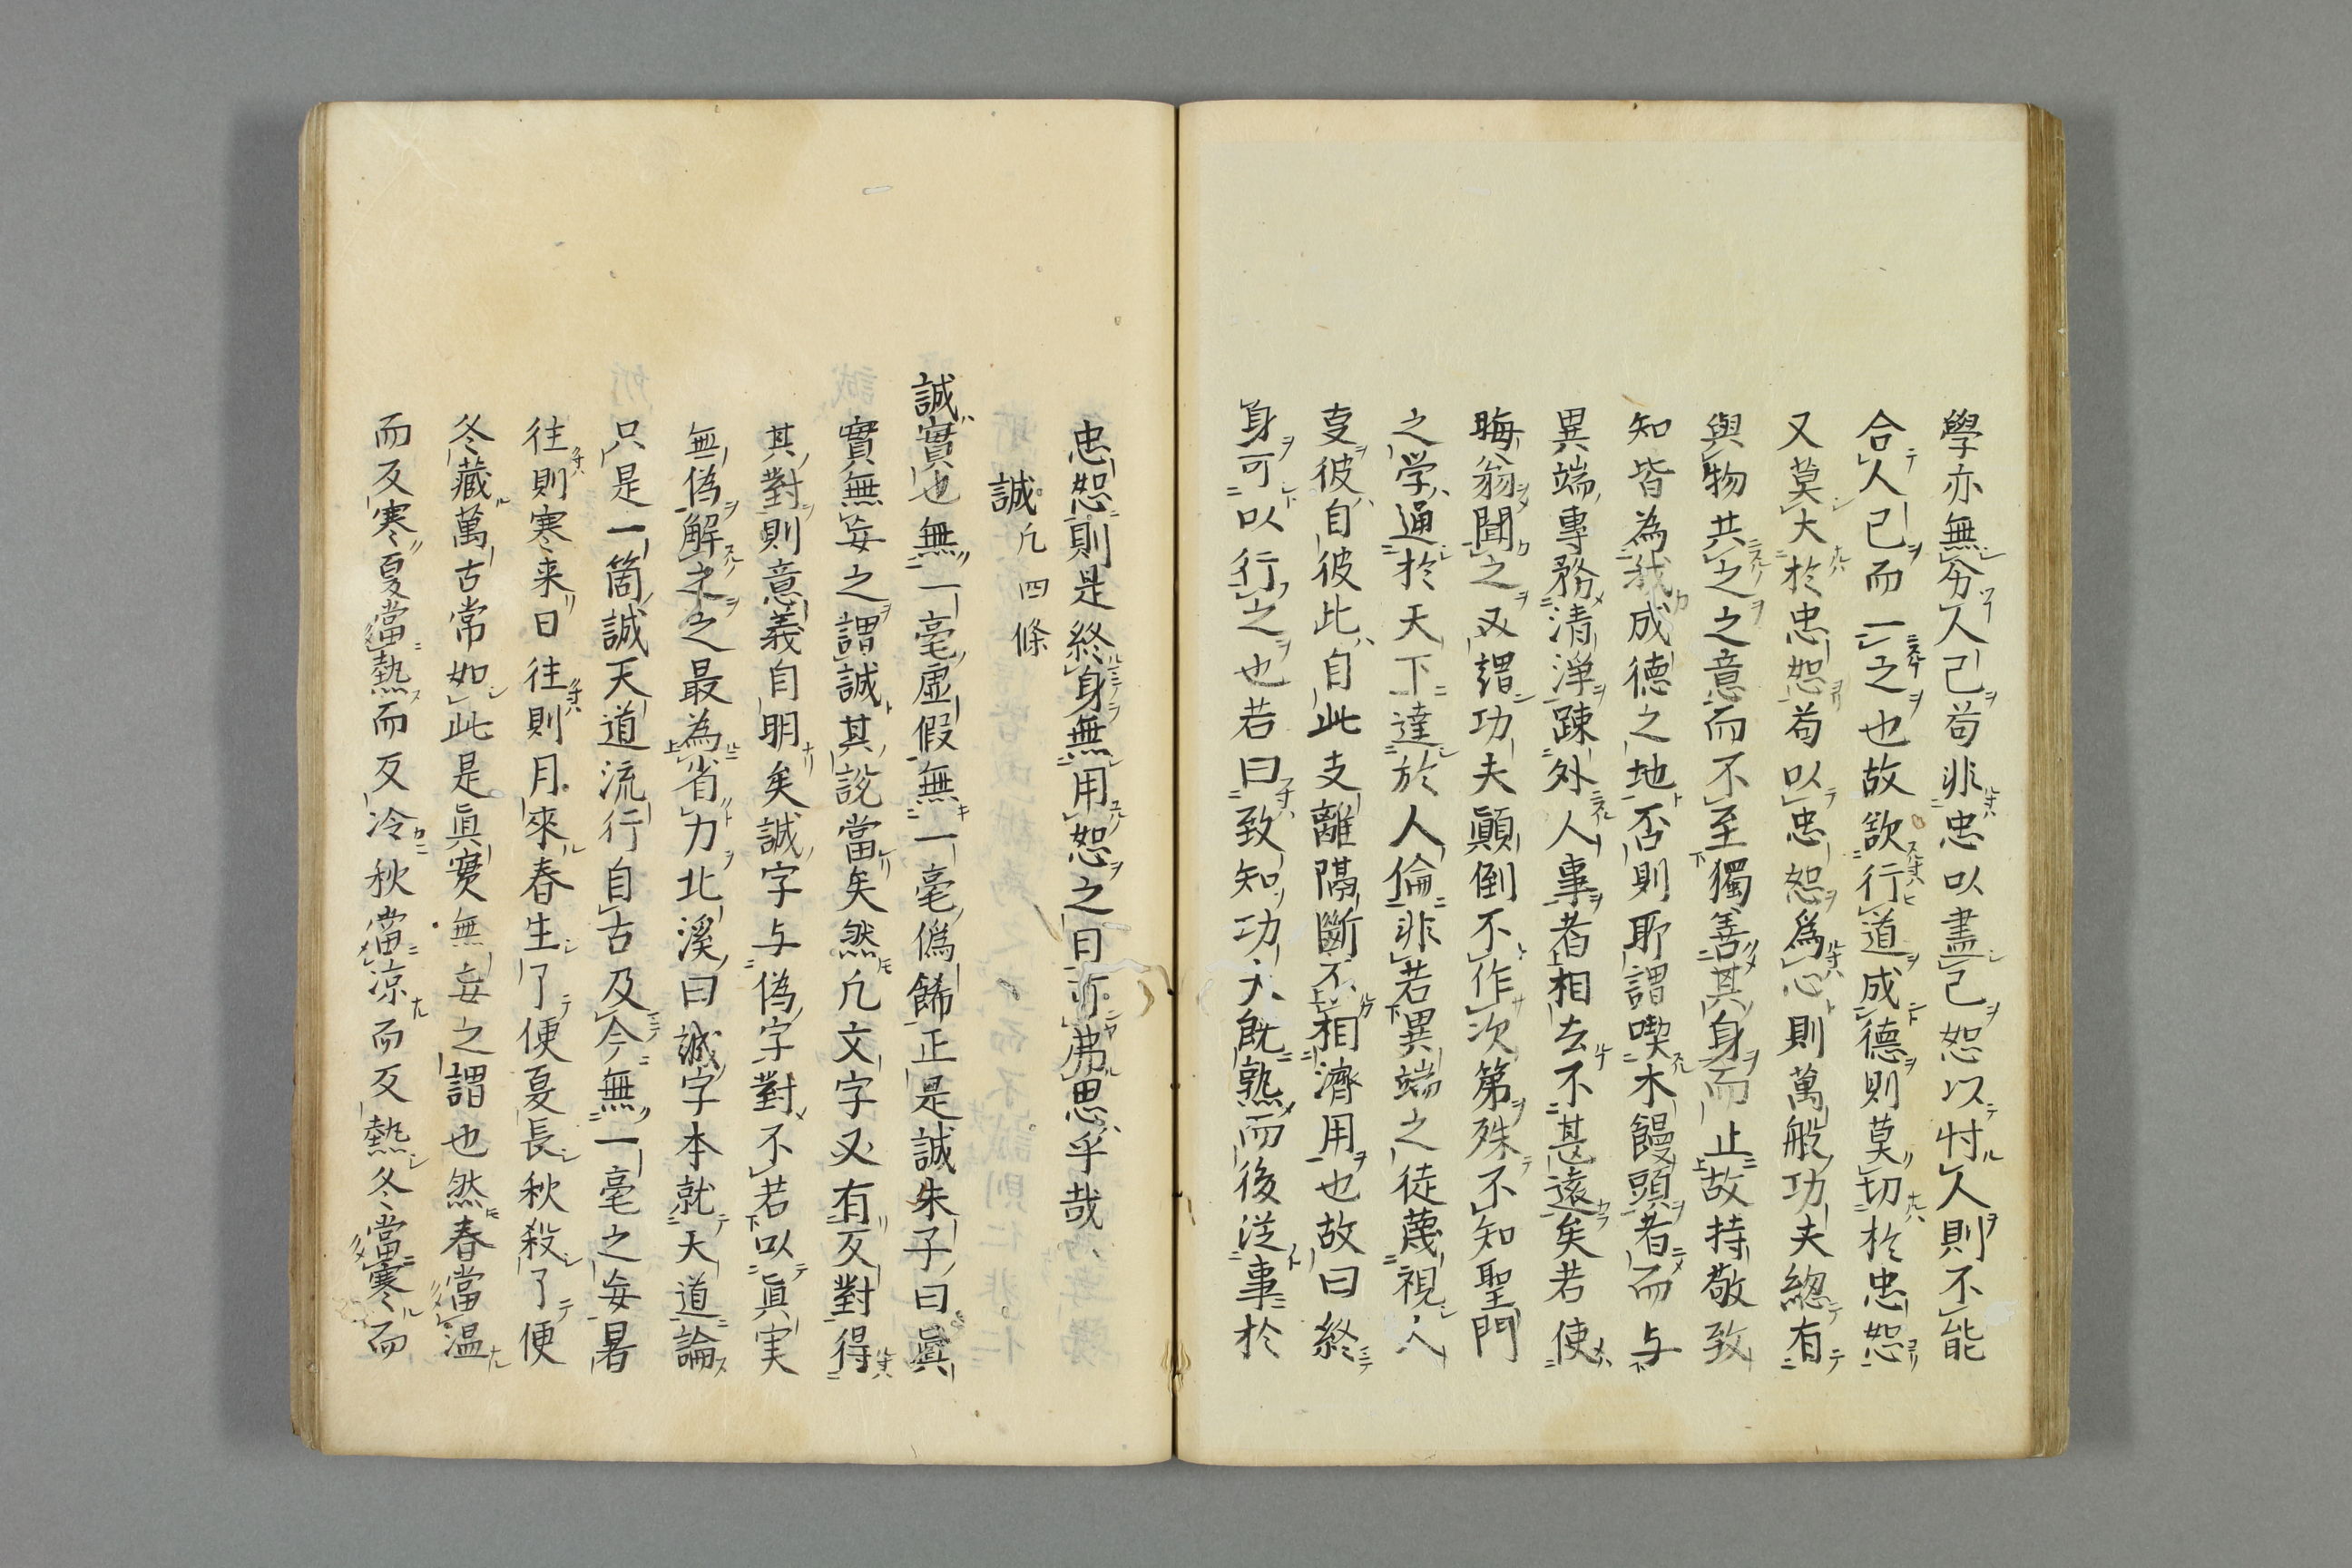 學亦無分人己苟非忠以盡己恕以忖人則不能
合人己而一之也故欲行道成德則莫切於忠恕
又莫大於忠恕苟以忠恕爲心則萬般功夫緫有
與物共之之意而不至獨善其身而止故持敬致
知皆為我成德之地否則耶謂喫木饅頭者而与
異端專務清淨踈外人事者相去不甚遠矣若使
晦翁聞之又謂功夫顚倒不作次第殊不知聖門
之学通於天下達於人倫非若異端之徒蔑視人
叓彼自彼此自此支離隔斷不相濟用也故曰終
身可以行之也若曰致知功夫既熟而後從事於
忠恕則是終身無用恕之日亦弗思乎哉
誠凡四條
誠實也無一毫虛假無一毫僞餙正是誠朱子曰眞
實無妄之謂誠其說當矣然凡文字又有反對得
其對則意義自明矣誠字与僞字對不若以眞実
無偽解之之最為省力北溪曰誠字本就天道論
只是一箇誠天道流行自古及今無一毫之妄暑
往則寒来日往則月來春生了便夏長秋殺了便
冬藏萬古常如此是眞實無妄之謂也然春當温
而反寒夏當熱而反冷秋當凉而反熱冬當寒而